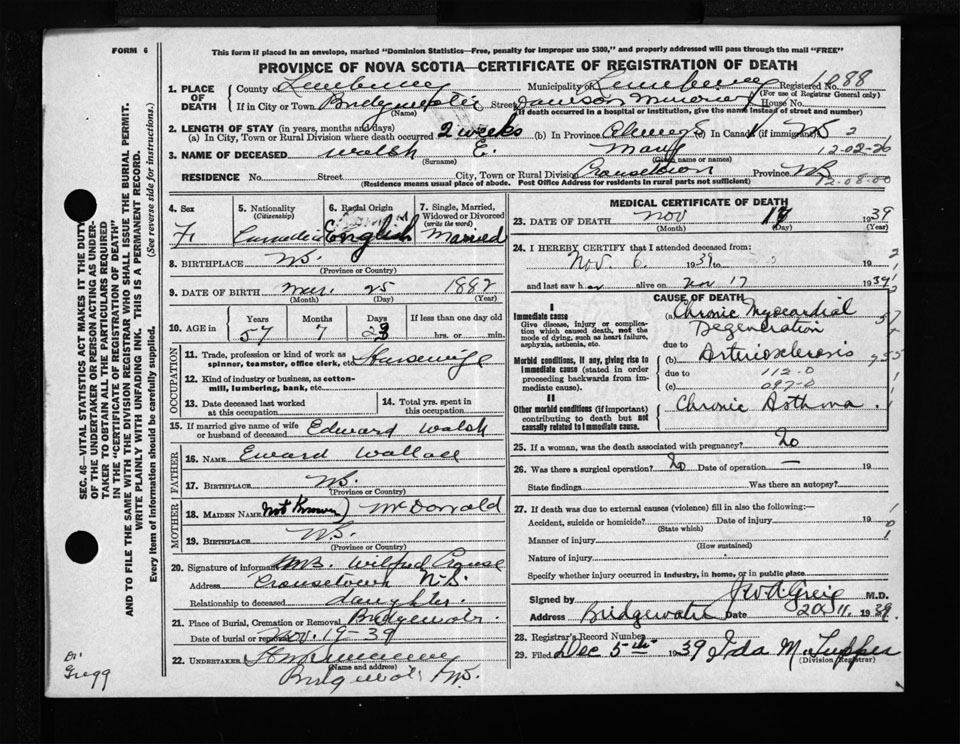 FORM 6
This form if placed in an envelope, marked "Dominion Statistics—Free, penalty for improper use $300," and properly addressed will pass through the mail "FREE"
PROVINCE OF NOVA SCOTIA—CERTIFICATE OF REGISTRATION OF DEATH
1. PLACE OF DEATH
County of Lunenburg Municipality of Lunenburg Registered No. 1088
(For use of Registrar General only)
If in City or Town Bridgewater Street Dawson Memorial House No.
(Name) (If death occurred in a hospital or institution, give the name instead of street and number)
2. LENGTH OF STAY (in years, months and days)
(a) In City, Town or Rural Division where death occurred 2 weeks (b) In Province Always (c) In Canada (if immigrant)
3. NAME OF DECEASED Walsh E. Mary 12-02-20
(Surname) (Given name or names)
RESIDENCE No. Street City, Town or Rural Division Crousetown Province NS
(Residence means usual place of abode. Post Office Address for residents in rural parts not sufficient) 12-08-00
4. Sex F
5. Nationality (Citizenship) Canadian
6. Racial Origin English
7. Single, Married, Widowed or Divorced (write the word) Married
8. BIRTHPLACE N.S.
(Province or Country)
9. DATE OF BIRTH Mar. 25 1882
(Month) (Day) (Year)
10. AGE in Years Months Days If less than one day old
57 7 23 hrs. or min.
OCCUPATION
11. Trade, profession or kind of work as spinner, teamster, office clerk, etc. Housewife
12. Kind of industry or business, as cotton-mill, lumbering, bank, etc.
13. Date deceased last worked at this occupation
14. Total yrs. spent in this occupation
15. If married give name of wife or husband of deceased Edward Walsh
FATHER
16. NAME Eward Wallace
17. BIRTHPLACE N.S.
(Province or Country)
MOTHER
18. MAIDEN NAME Not Known) McDonald
19. BIRTHPLACE N.S.
(Province or Country)
20. Signature of informant Mrs. Wilfred Crouse
Address Crousetown N.S.
Relationship to deceased daughter.
21. Place of Burial, Cremation or Removal Bridgewater.
Date of burial or removal Nov. 19-39
22. UNDERTAKER
(Name and address)
Bridgewater N.S.
MEDICAL CERTIFICATE OF DEATH
23. DATE OF DEATH Nov 17 1939
(Month) (Day) (Year)
24. I HEREBY CERTIFY that I attended deceased from:
Nov. 6. 1939 to 19
and last saw her alive on Nov 17 1939
CAUSE OF DEATH
I
Immediate cause
Give disease, injury or complication which caused death, not the mode of dying, such as heart failure, asphyxia, asthenia, etc.
(a) Chronic Myocardial Degeneration
due to
Morbid conditions, if any, giving rise to immediate cause (stated in order proceeding backwards from immediate cause).
(b) Arteriosclerosis
due to 112-0
(c) 097-0
II
Other morbid conditions (if important) contributing to death but not causally related to immediate cause.
Chronic Asthma.
25. If a woman, was the death associated with pregnancy? No
26. Was there a surgical operation? No Date of operation — 19
State findings Was there an autopsy?
27. If death was due to external causes (violence) fill in also the following:—
Accident, suicide or homicide? Date of injury 19
(State which)
Manner of injury
(How sustained)
Nature of injury
Specify whether injury occurred in industry, in home, or in public place
Signed by M.D.
Address Bridgewater Date 20/11. 1939.
28. Registrar's Record Number
29. Filed Dec 5th 1939 Ida M. Tupper
(Division Registrar)
SEC. 46—VITAL STATISTICS ACT MAKES IT THE DUTY
OF THE UNDERTAKER OR PERSON ACTING AS UNDER-
TAKER TO OBTAIN ALL THE PARTICULARS REQUIRED
IN THE "CERTIFICATE OF REGISTRATION OF DEATH"
AND TO FILE THE SAME WITH THE DIVISION REGISTRAR WHO SHALL ISSUE THE BURIAL PERMIT.
WRITE PLAINLY WITH UNFADING INK. THIS IS A PERMANENT RECORD.
Every item of information should be carefully supplied. (See reverse side for instructions.)
Gregg